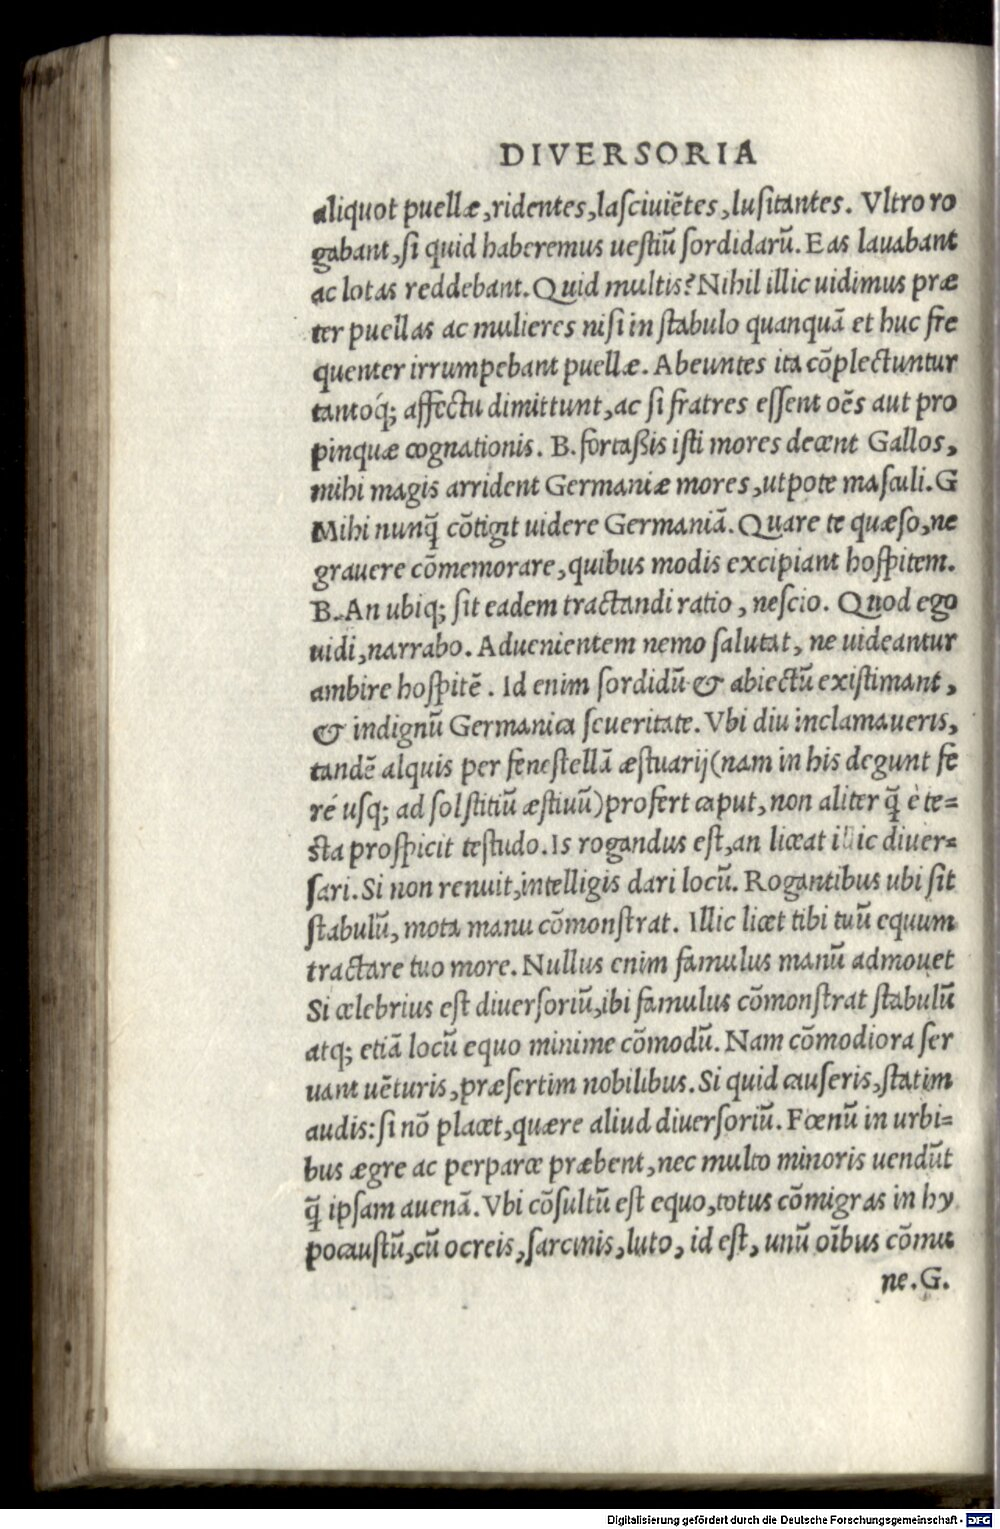 DIVERSORIA
aliquot puellæ,ridentes,laſciuiẽtes,luſitantes. Vltro ro
gabant,ſi quid haberemus ueſtiũ ſordidarũ. Eas lauabant
ac lotas reddebant. Quid multis? Nihil illic uidimus præ
ter puellas ac mulieres niſi in ſtabulo quanquã et huc fre
quenter irrumpebant puellæ. Abeuntes ita cõplectuntur
tantoq́; affectu dimittunt,ac ſi fratres eſſent oẽs aut pro
pinquæ cognationis. B. fortaßis iſti mores decent Gallos,
mihi magis arrident Germaniæ mores,utpote maſculi. G
Mihi nunq̃ cõtigit uidere Germaniã. Quare te quæſo,ne
grauere cõmemorare,quibus modis excipiant hoſpitem.
B. An ubiq; ſit eadem tractandi ratio, neſcio. Quod ego
uidi,narrabo. Aduenientem nemo ſalutat, ne uideantur
ambire hoſpitẽ. Id enim ſordidũ & abiectũ exiſtimant,
& indignũ Germanica ſeueritate. Vbi diu inclamaueris,
tandẽ alquis per feneſtellã æſtuarij(nam in his degunt fe
ré uſq; ad ſolſtitiũ æſtiuũ)profert caput,non aliter q̃ è te=
ſta proſpicit teſtudo. Is rogandus eſt,an liceat illic diuer=
ſari. Si non renuit,intelligis dari locũ. Rogantibus ubi ſit
ſtabulũ, mota manu cõmonſtrat. Illic licet tibi tuũ equum
tractare tuo more. Nullus enim famulus manũ admouet
Si celebrius eſt diuerſoriũ,ibi famulus cõmonſtrat ſtabulũ
atq; etiã locũ equo minime cõmodũ. Nam cõmodiora ſer
uant uẽturis,præſertim nobilibus. Si quid cauſeris,ſtatim
audis: ſi nõ placet,quære aliud diuerſoriũ. Fœnũ in urbi=
bus ægre ac perparce præbent,nec multo minoris uendũt
q̃ ipſam auenã. Vbi cõſultũ eſt equo,totus cõmigras in hy
pocauſtũ,cũ ocreis,ſarcinis,luto, id eſt, unũ oĩbus cõmu
ne. G.
Digitalisierung gefördert durch die Deutsche Forschungsgemeinschaft - DFG